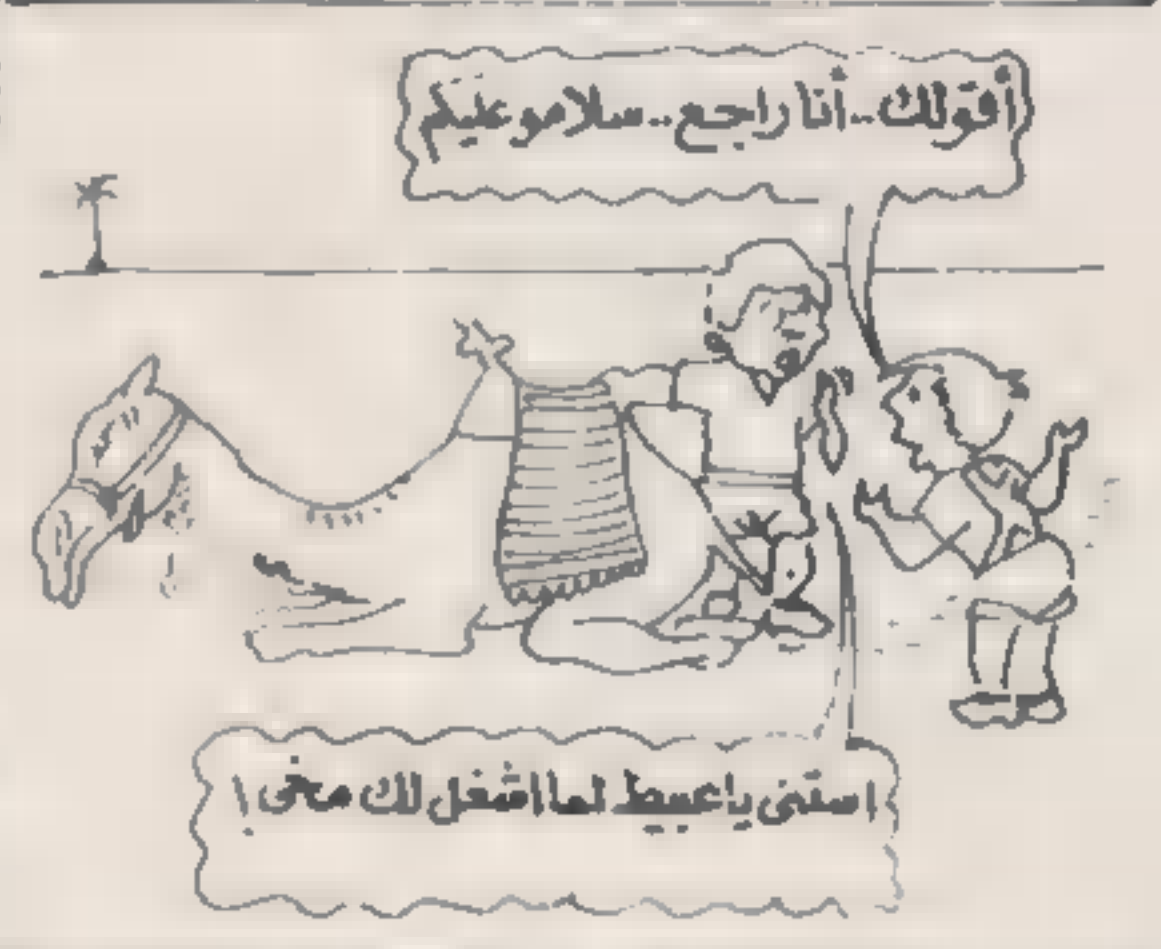 أقولك.. أنا راجع.. سلامو عليكم
استنى يا عبيط لما اشغل لك مخى !